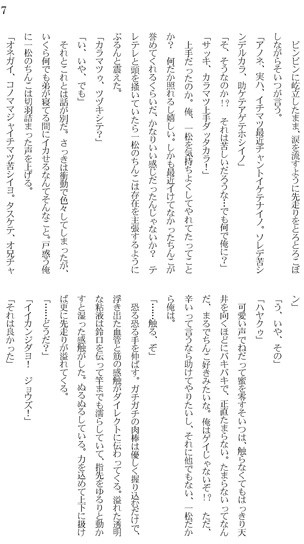 ビンビンに屹立したまま、涙を流すように先走りをとろとろこぼ
しながらそいつが言う。
「アノネ、実ハ、イチマツ最近チャントイケテナイノ。ソレデ苦シ
ンデルカラ、助ケテアゲテホシイノ」
「そ、そうなのか!? それは苦しいだろうな…でも何で俺に?」
「サッキ、カラマツ上手ダッタカラ！」
上手だったのか。俺、一松を気持ちよくしてやれてたってこと
か? 何だか照れるし嬉しい。しかも最近イけてなかったちんこが
誉めてくれるくらいだ、かなりいい感じだったんじゃないか? テ
レテレと頭を掻いていたら一松のちんこは存在を主張するように
ぶるんと震えた。
「カラマツゥ、ツヅキシテ?」
「い、いや、でも」
それとこれとは話が別だ。さっきは衝動で色々してしまったが、
いくら何でも弟が寝てる間にイカせるなんてそんなこと。戸惑う俺
に一松のちんこは切羽詰まった声を上げる。
「オネガイ、コノママジャイチマツ苦シイヨ、タスケテ、オ兄チャ
ン」
「う、いや、その」
「ハヤクゥ」
可愛い声でねだって蜜を零すそいつは、触らなくてもはっきり天
井を向くほどにバキバキで、正直たまらない。たまらないってなん
だ、まるでちんこ好きみたいな。俺はゲイじゃないぞ!? ただ、
辛いって言うなら助けてやりたいし、それに他でもない、一松だか
ら俺は。
「……触る、ぞ」
恐る恐る手を伸ばす。ガチガチの肉棒は優しく握り込むだけで、
浮き出た血管と筋の感触がダイレクトに伝わってくる。溢れた透明
な粘液は鈴口を伝って竿までも濡らしていて、指先をゆるりと動か
すと湿った感触がした。ぬるぬるしている。力を込めて上下に扱け
ば更に先走りが溢れてくる。
「……どうだ?」
「イイカンジダヨ！ ジョウズ！」
「それは良かった」
7